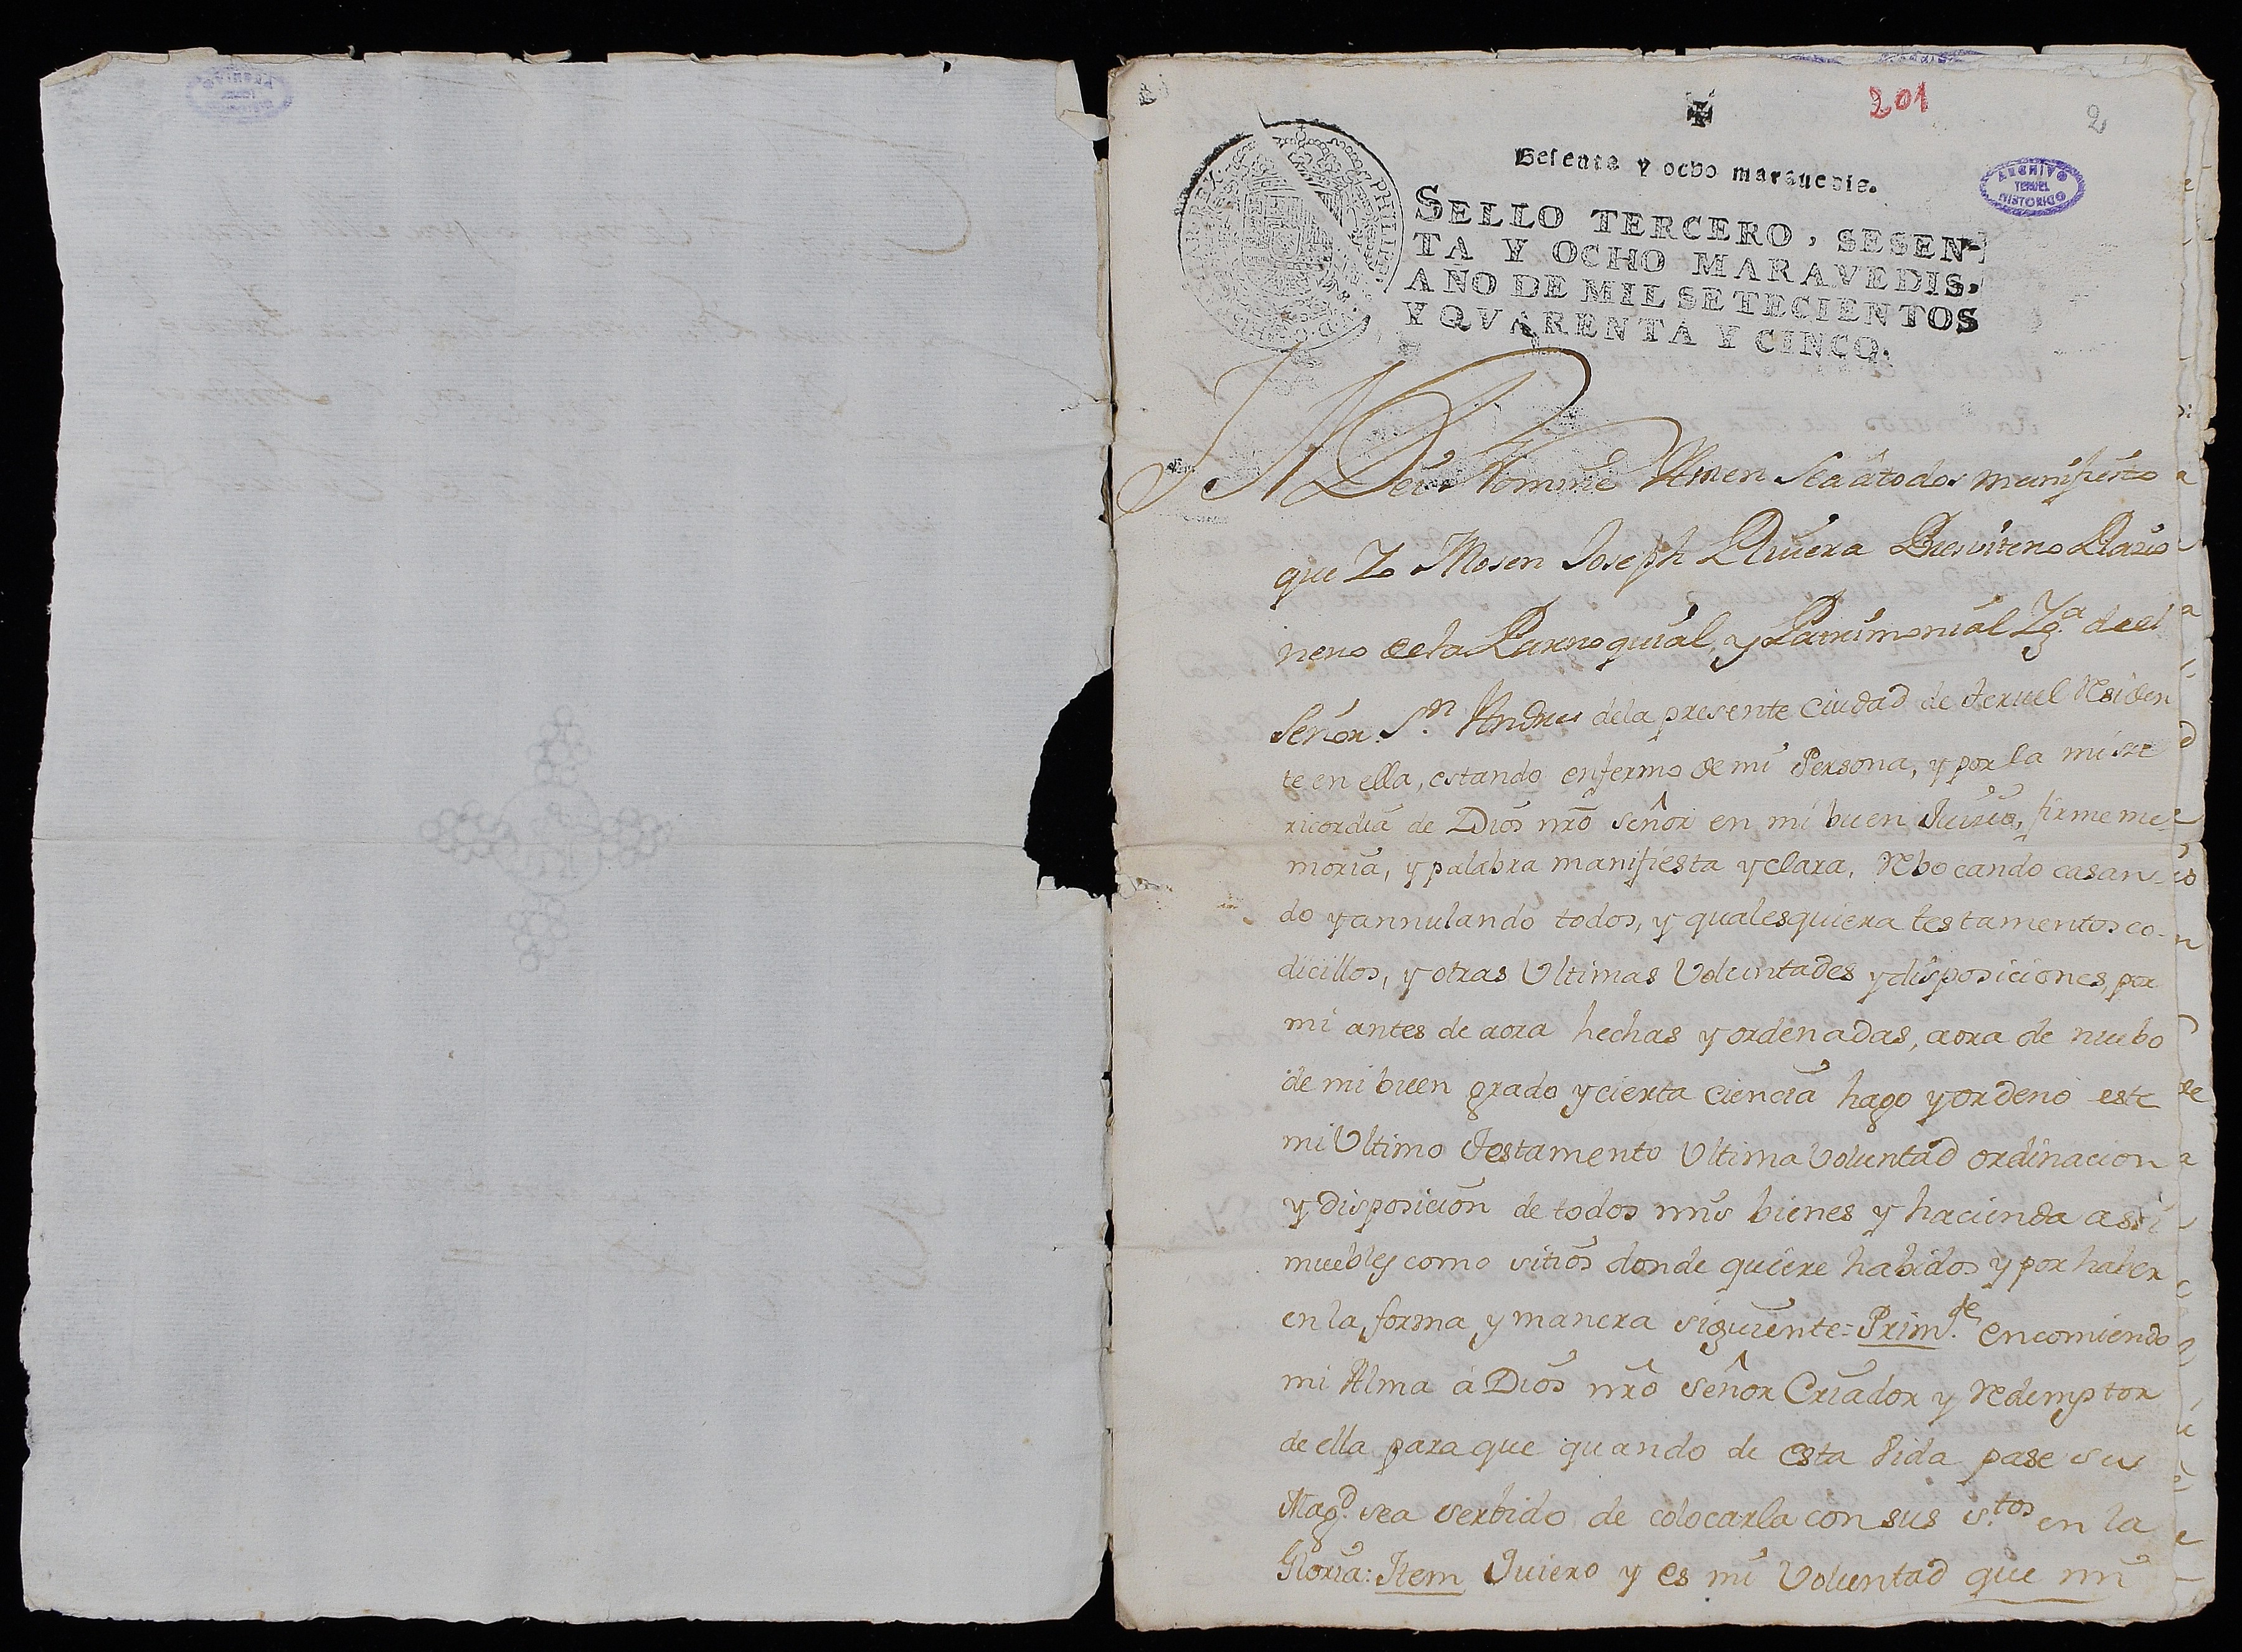 201
2
Sesenta y ocho maravedis.
SELLO TERCERO, SESEN-
TA Y OCHO MARAVEDIS,
AÑO DE MIL SETECIENTOS
Y QVARENTA Y CINCO.
ARCHIVO
TERUEL
HISTORICO
IN Dei Nomine Amen Sea à todos manifiesto
que Yo Mosen Joseph Rivera Presvitero Razio
nero de la Parroquial, y Patrimonial Yg.ª de el
Señor S.n Andres dela presente Ciudad de Teruel Residen
te en ella, estando enfermo de mi Persona, y por la mise
ricordia de Dios nro Señor en mi buen Juicio, firme me-
moria, y palabra manifiesta y clara, Rebocando casan-
do y annulando todos, y qualesquiera testamentos co-
dicillos, y otras Ultimas Voluntades y disposiciones, por
mi antes de aora hechas y ordenadas, aora de nuebo
de mi buen grado y cierta Ciencia hago y ordeno este
mi Ultimo Testamento Ultima Voluntad ordinacion
y Disposicion de todos mis bienes y hacienda assi
muebles como sitios donde quiere habidos y por haber
en la forma y manera siguiente= Prim.te encomiendo
mi Alma à Dios nro Señor Criador y Redemptor
de ella para que quando de esta Vida pase su
Mag.d sea serbido de colocarla con sus S.tos en la
Gloria: Item Quiero y es mi Voluntad que mi